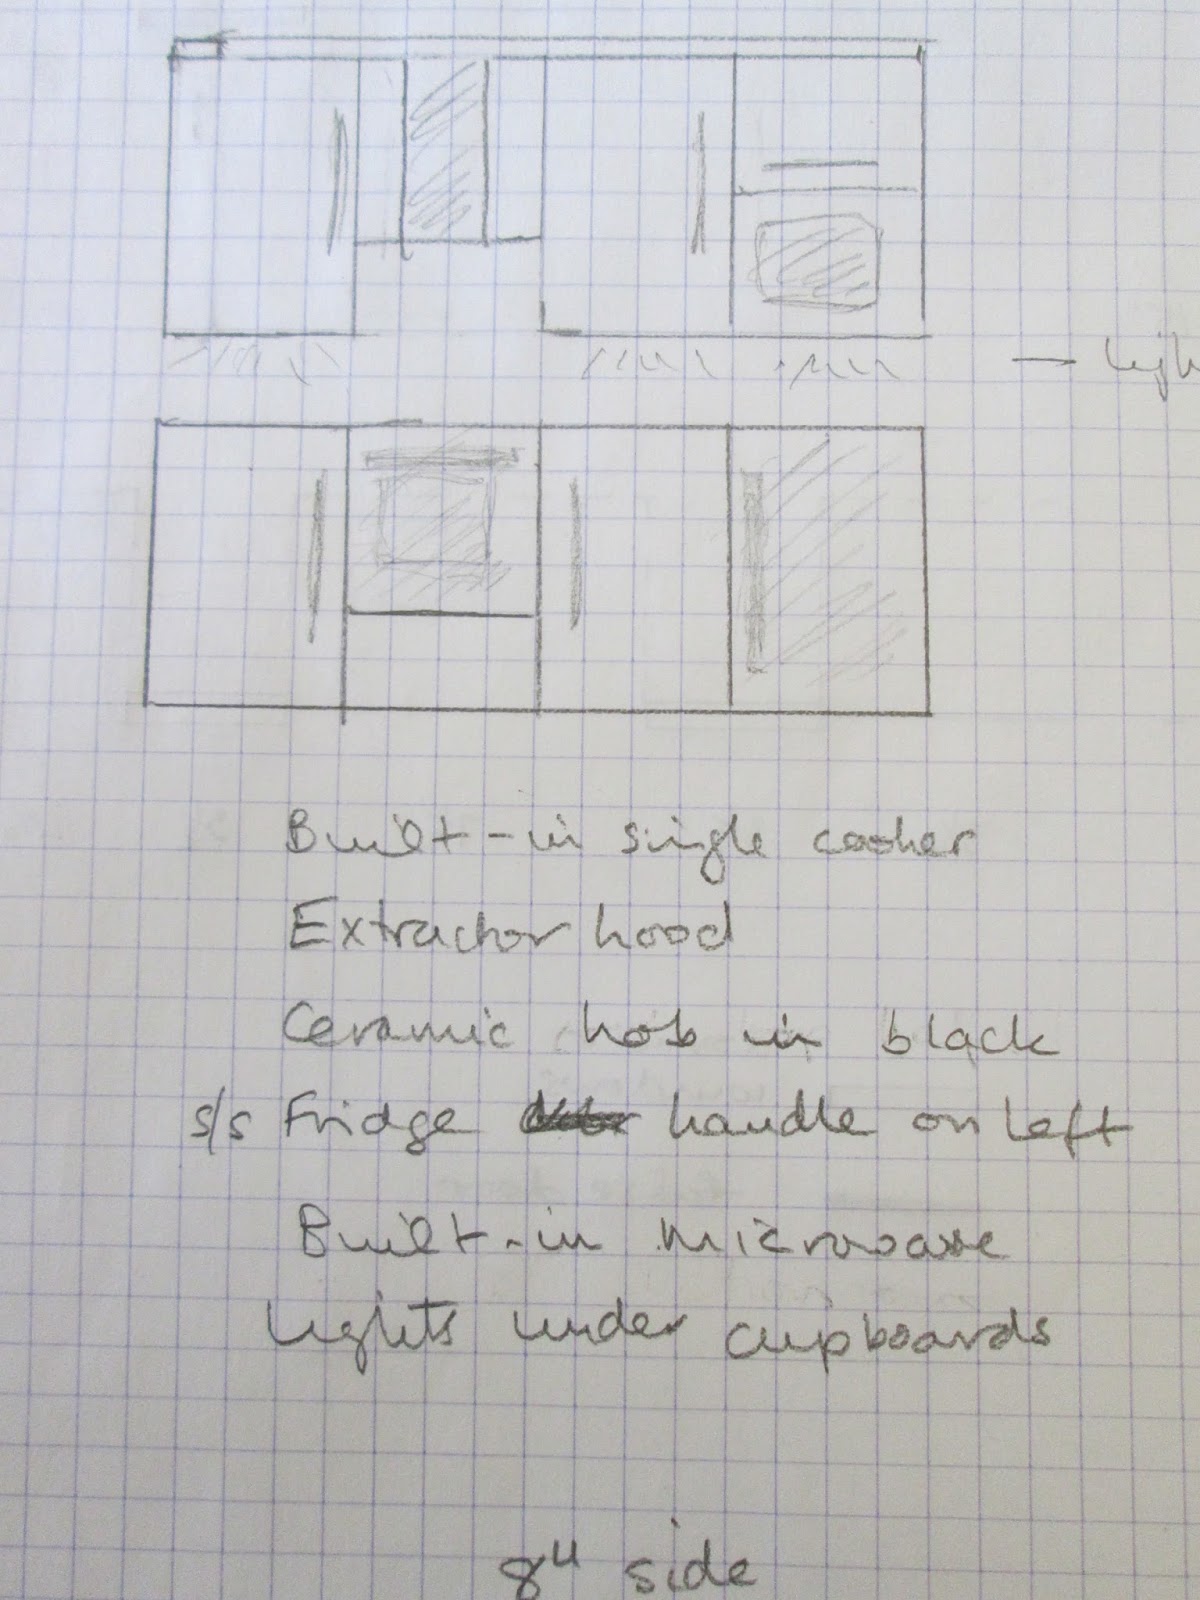 → ligh
Built-in single cooker
Extractor hood
Ceramic hob in black
s/s Fridge handle on left
Built-in microwave
Lights under cupboards
8" side